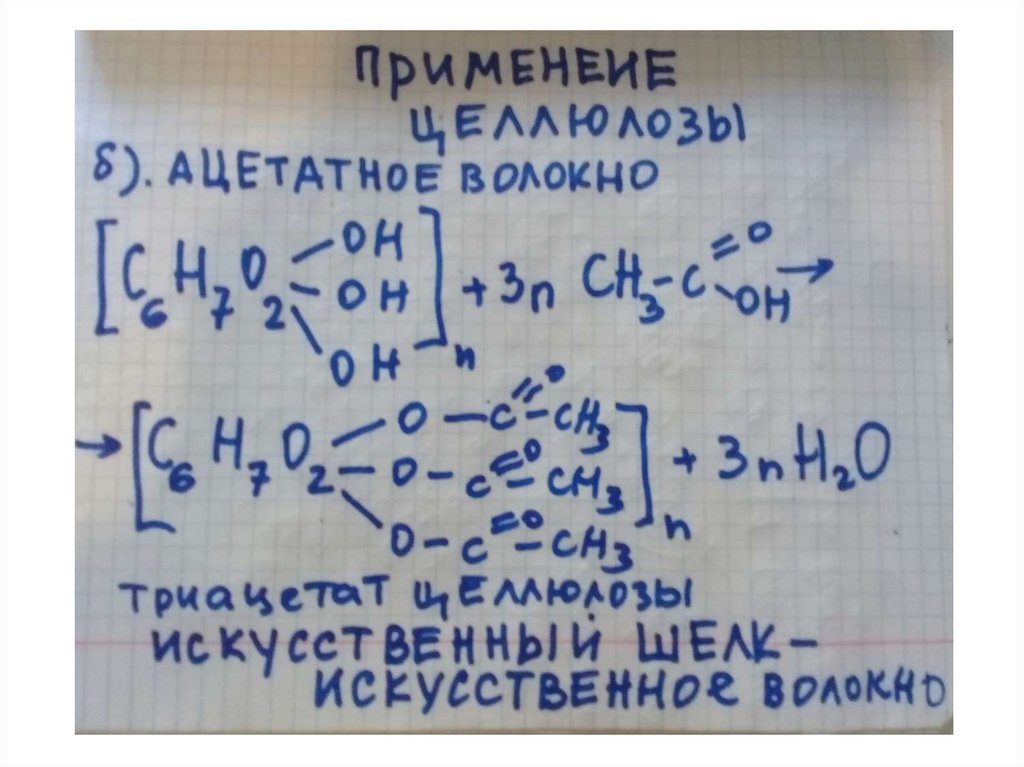 ПРИМЕНЕИЕ
ЦЕЛЛЮЛОЗЫ
б). АЦЕТАТНОЕ ВОЛОКНО
[C6H7O2 –OH –OH –OH]n + 3n CH3–C =O –OH →
→ [C6H7O2 –O–C=O–CH3 –O–C=O–CH3 –O–C=O–CH3]n + 3n H2O
ТРИАЦЕТАТ ЦЕЛЛЮЛОЗЫ
ИСКУССТВЕННЫЙ ШЕЛК –
ИСКУССТВЕННОЕ ВОЛОКНО